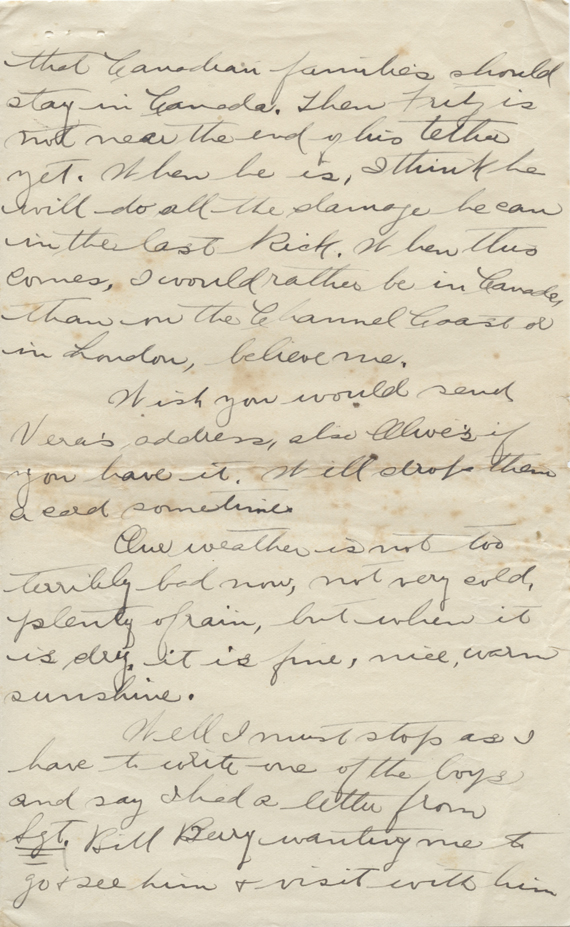 that Canadian families should
stay in Canada. Then Fritz is
not near the end of his tether
yet. When he is, I think he
will do all the damage he can
in the last kick. When this
comes, I would rather be in Canada,
than on the Channel Coast or
in London, believe me.
Wish you would send
Vera's address, also Olive's if
you have it. Will drop them
a card sometime.
Our weather is not too
terribly bad now, not very cold,
plenty of rain, but when it
is dry, it is fine, nice, warm
sunshine.
Well I must stop as I
have to write one of the boys
and say I had a letter from
Sgt. Bill Berry wanting me to
go & see him & visit with him